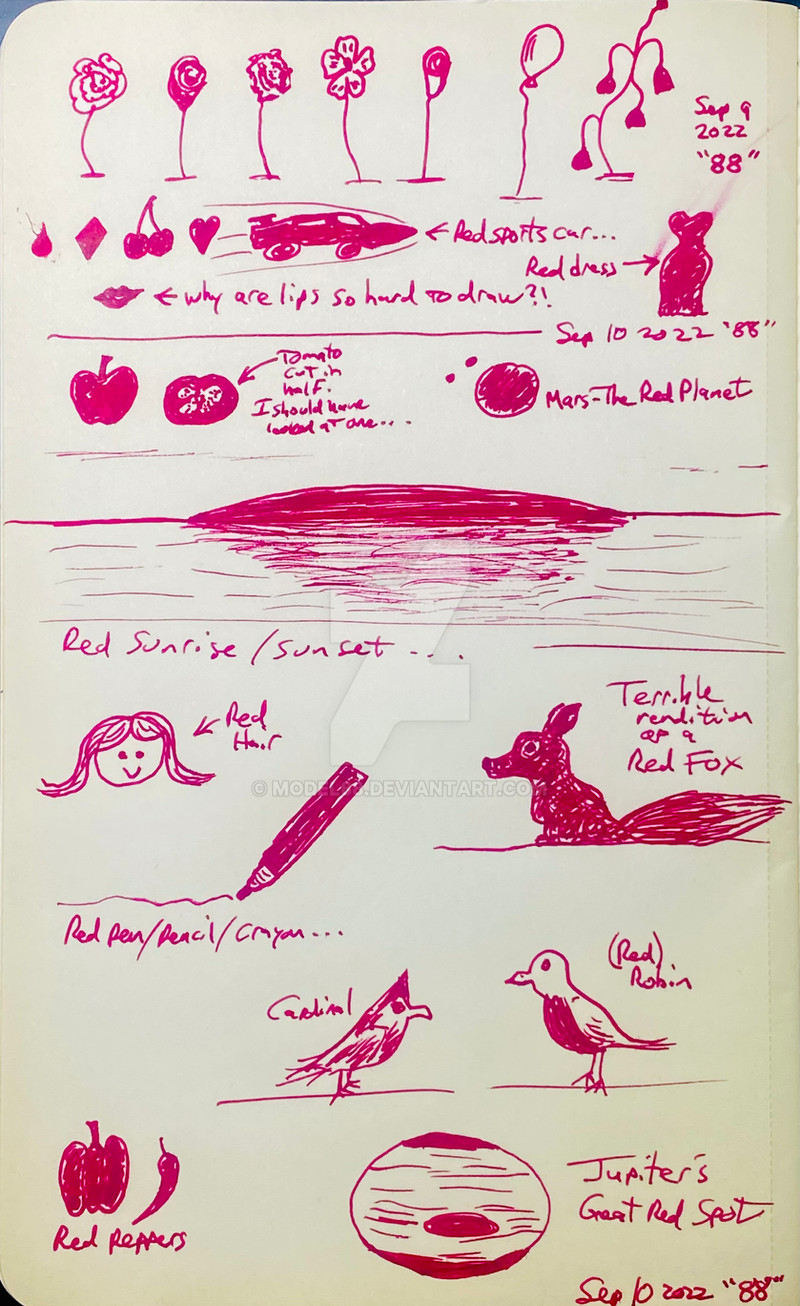 Sep 9
2022
"88"
← Red sports car...
Red dress →
← why are lips so hard to draw?!
Sep 10 2022 "88"
Tomato
cut in
half.
I should have
looked at one...
Mars-The Red Planet
Red Sunrise/sunset ....
Red
Hair
Terrible
rendition
of a
Red Fox
© MODEL .DEVIANTART.COM
Red pen/pencil/crayon...
Cardinal
(Red)
Robin
Red Peppers
Jupiter's
Great Red Spot
Sep 10 2022 "88"